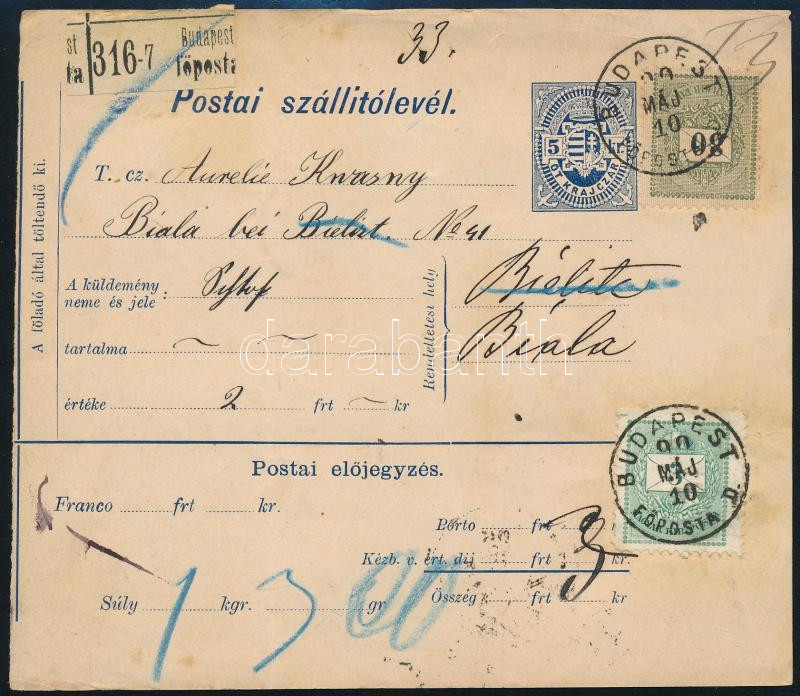 33.
st Budapest
ta 316-7 főposta
Postai szállitólevél.
5 kr
ÖT KRAJCZÁR
BUDAPEST
90
MÁJ
10
FŐPOSTA
30
A föladó által töltendő ki.
T. cz. Aurelie Kwasny
Biala bei Bielizt. No 41
A küldemény
neme és jele :
tartalma
értéke 2 frt — kr
Rendeltetési hely
Bielitz
Biala
BUDAPEST
90
MÁJ
10
FŐPOSTA
3
Postai előjegyzés.
Franco frt kr.
Porto frt kr
Kézb. v. ért. dij frt kr
Súly kgr. gr.
Összeg frt kr
3
1 300
darabanth